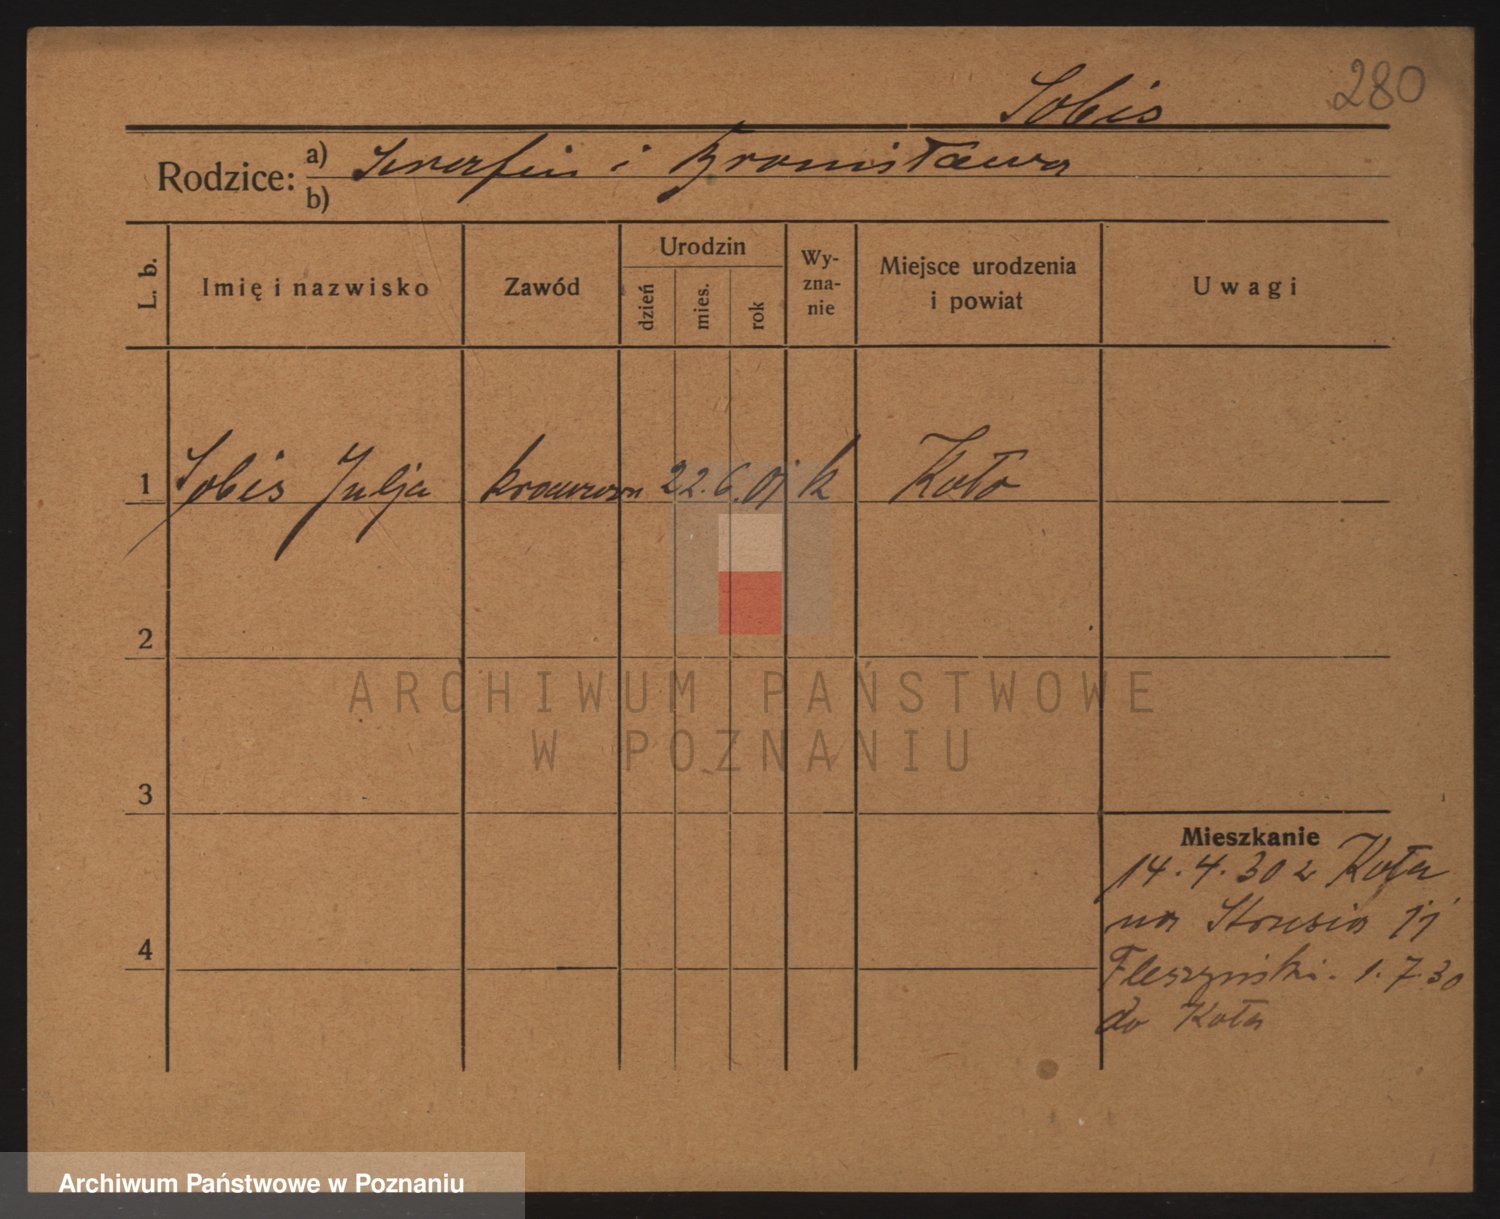 280
Sobis
Rodzice: a) Serafin i Bronisława
b)
L. b.
Imię i nazwisko
Zawód
Urodzin
dzień
mies.
rok
Wy-
zna-
nie
Miejsce urodzenia
i powiat
Uwagi
1 Sobis Julja krawcowa 22. 6. 01 k Koło
2
ARCHIWUM PAŃSTWOWE
W POZNANIU
3
Mieszkanie
14. 4. 30 z Koła
na
4
1. 7. 30
do Koła
Archiwum Państwowe w Poznaniu